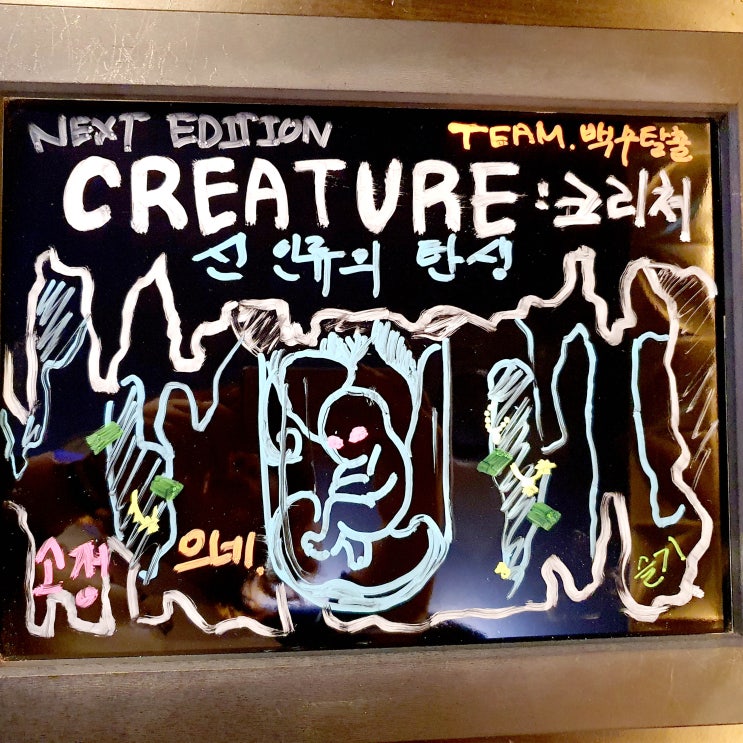 NEXT EDITION
TEAM.백수탈출
CREATURE:크리처
신 인류의 탄생
소정
으네.
슬기